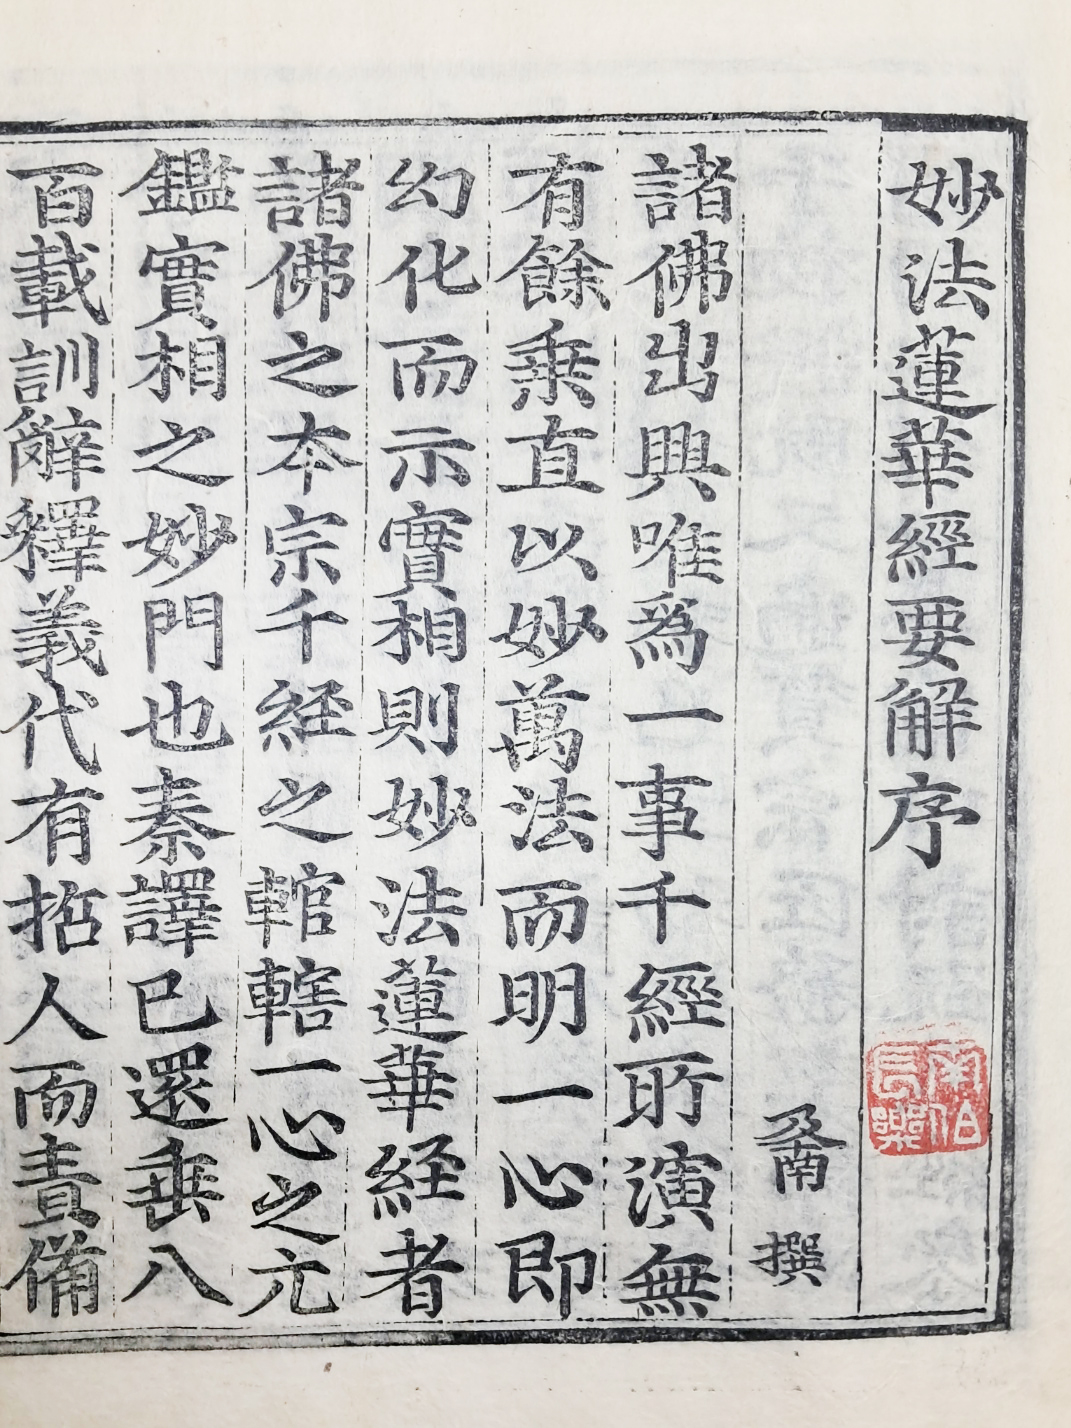 妙法蓮華經要解序
及南 撰
諸佛出興唯爲一事千經所演無
有餘乗直以妙萬法而明一心即
幻化而示實相則妙法蓮華経者
諸佛之本宗千経之輨轄一心之元
鑑實相之妙門也秦譯已還垂八
百載訓辭釋義代有哲人而責備